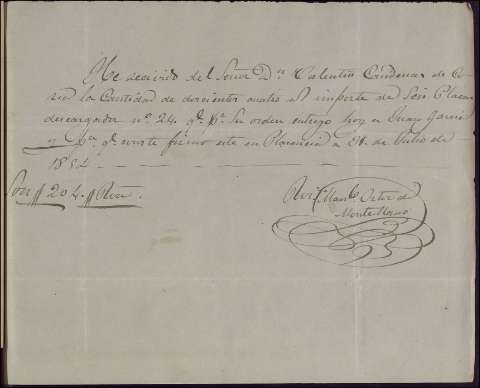 He recivido del Señor Dn Valentin Cardenas de Co
ria la Cantidad de doscientos cuatro rs importe de Seis Placas
descargador nº 24. qe. pr. su orden entrego hoy a Juan Garcia
y pa. qe. conste firmo este en Plasencia a 21. de Julio de
1854
Son # 204. # Rvn.
Manl.
Monte